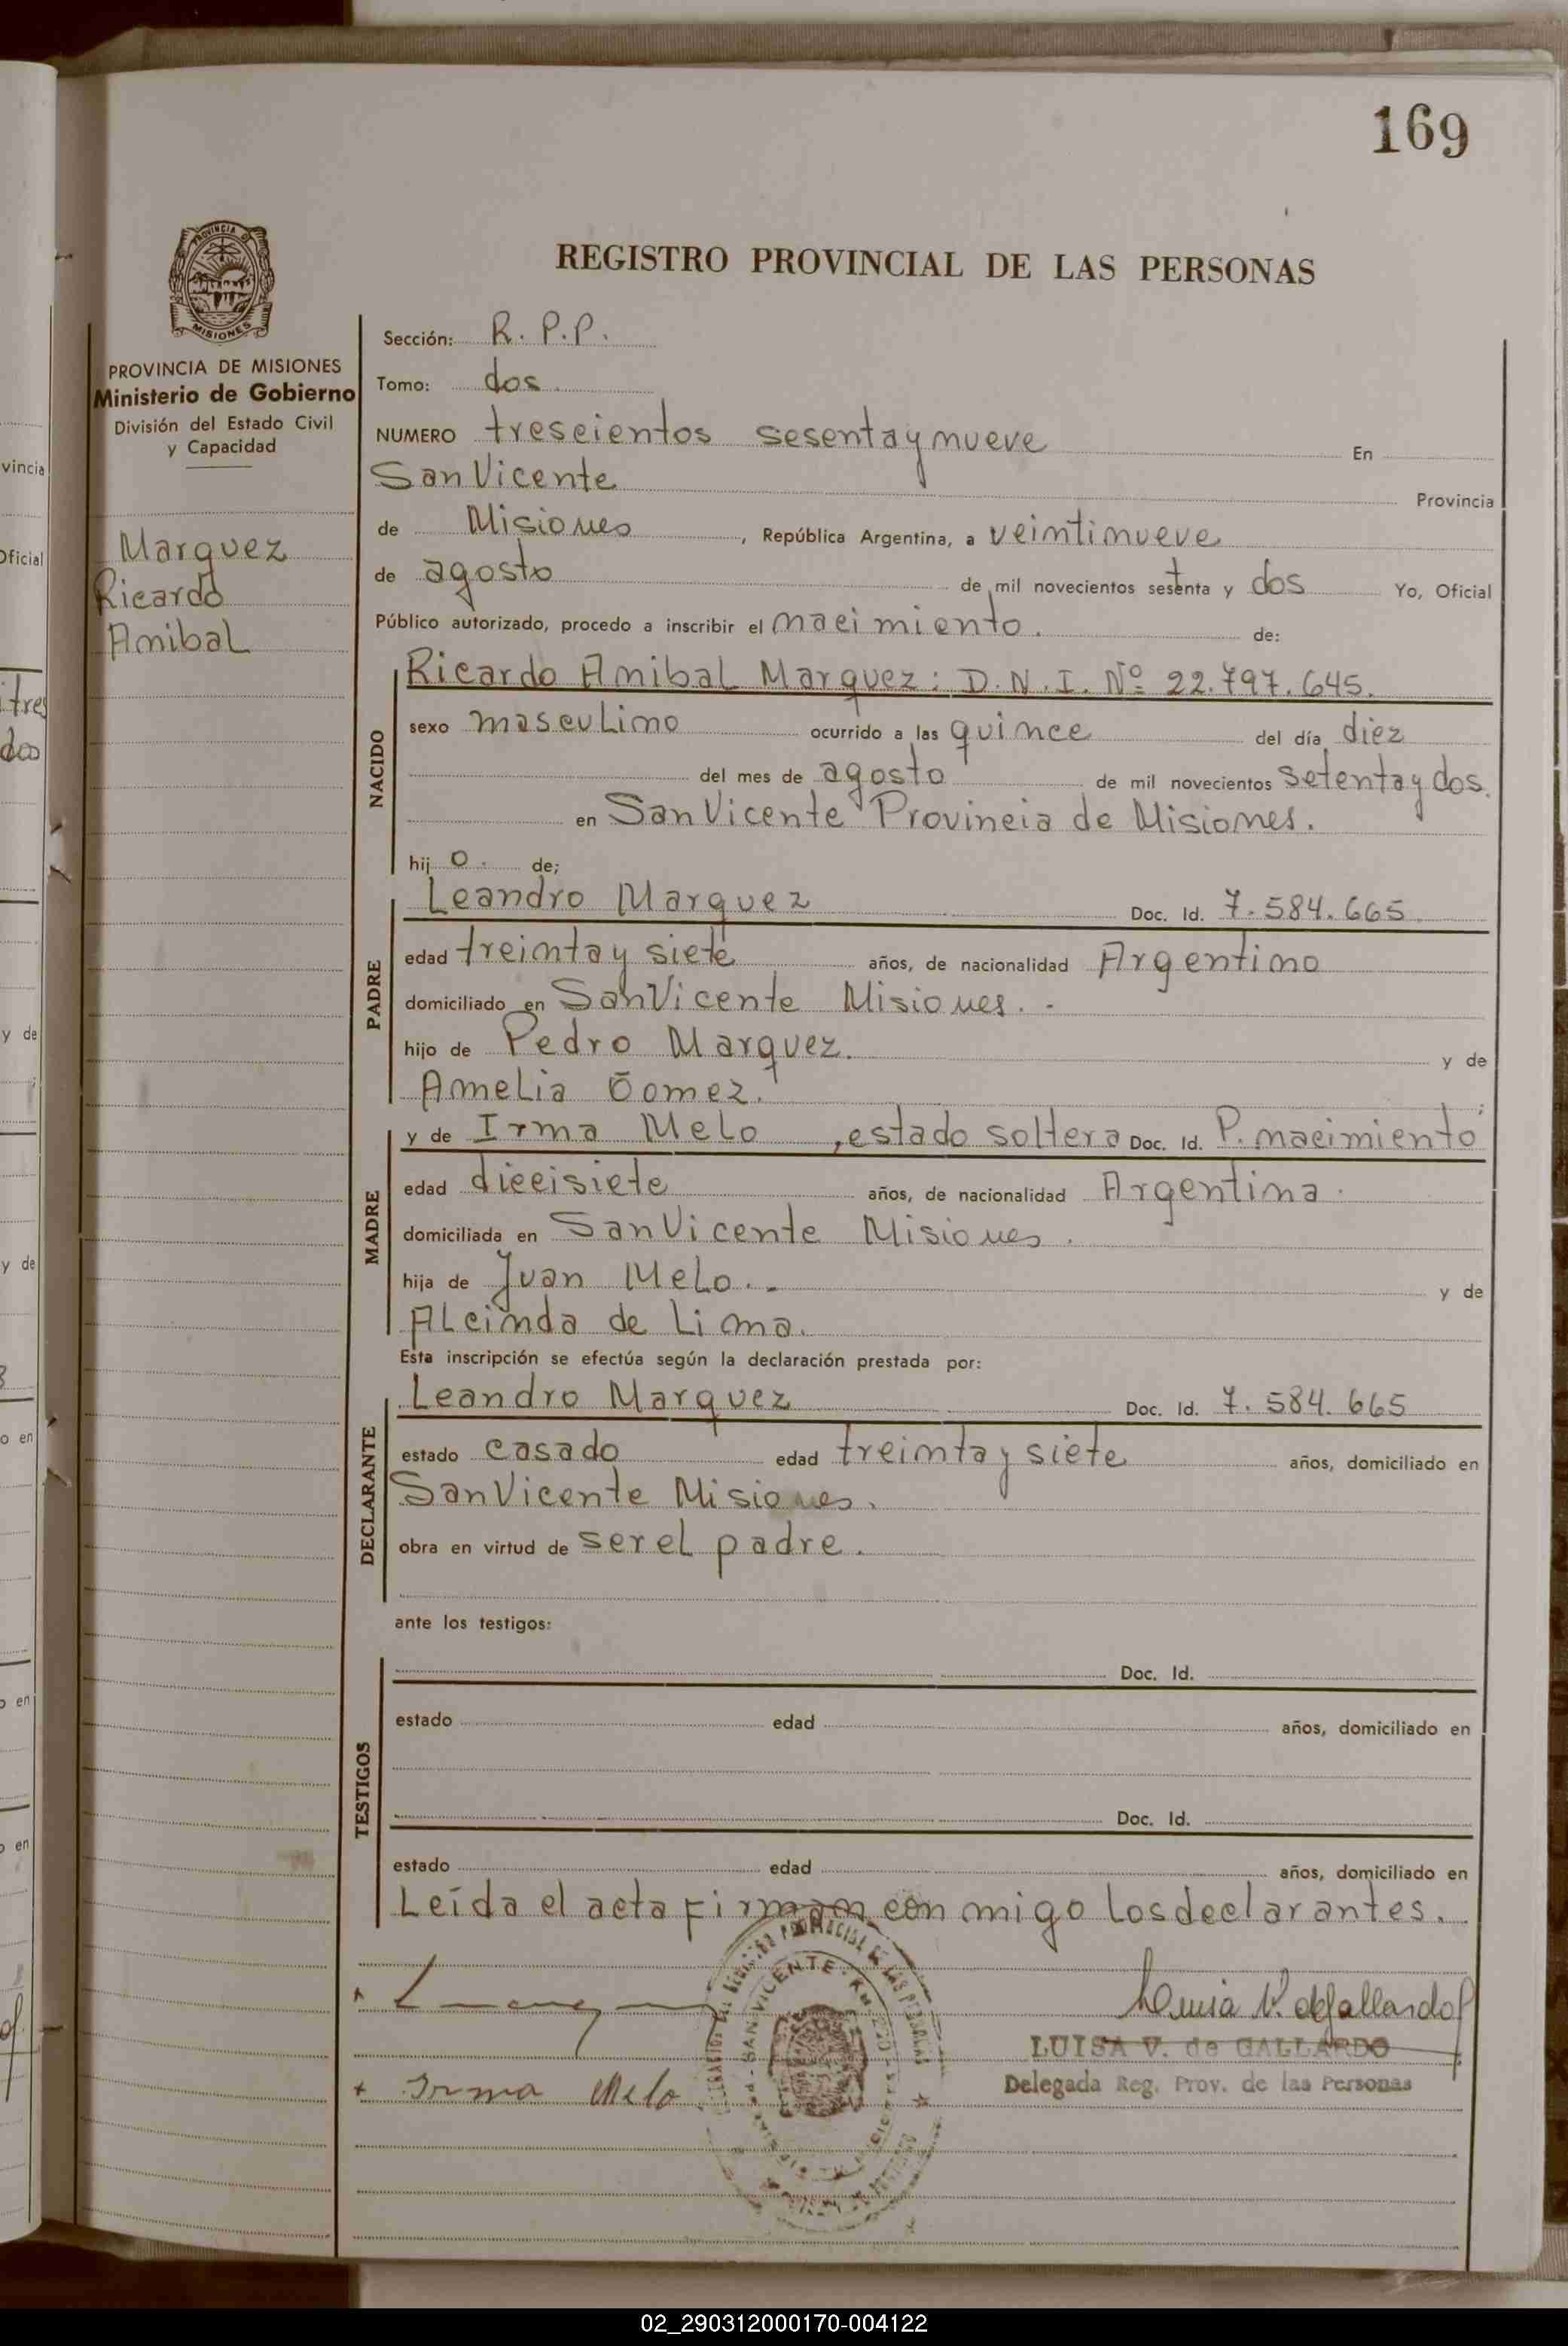 169
PROVINCIA DE
MISIONES
REGISTRO PROVINCIAL DE LAS PERSONAS
PROVINCIA DE MISIONES
Ministerio de Gobierno
División del Estado Civil
y Capacidad
Marquez
Ricardo
Anibal
Sección: R. P.P.
Tomo: dos.
NUMERO trescientos sesenta y nueve En
San Vicente Provincia
de Misiones, República Argentina, a veintinueve
de agosto de mil novecientos setenta y dos Yo, Oficial
Público autorizado, procedo a inscribir el nacimiento. de:
NACIDO
Ricardo Anibal Marquez: D.N.I. Nº 22.797.645.
sexo masculino ocurrido a las quince del día diez
del mes de agosto de mil novecientos setenta y dos.
en San Vicente Provincia de Misiones.
hij o. de;
PADRE
Leandro Marquez Doc. Id. 7.584.665.
edad treinta y siete años, de nacionalidad Argentino
domiciliado en San Vicente Misiones. -
hijo de Pedro Marquez. y de
Amelia Gomez. ;
MADRE
y de Irma Melo, estado soltera Doc. Id. P. nacimiento
edad diecisiete años, de nacionalidad Argentina.
domiciliada en San Vicente Misiones.
hija de Juan Melo.- y de
Alcinda de Lima.
Esta inscripción se efectúa según la declaración prestada por:
DECLARANTE
Leandro Marquez Doc. Id. 7.584.665
estado casado edad treinta y siete años, domiciliado en
San Vicente Misiones.
obra en virtud de ser el padre.
ante los testigos:
TESTIGOS
Doc. Id.
estado edad años, domiciliado en
Doc. Id.
estado edad años, domiciliado en
Leída el acta firman con migo los declarantes.
SAN VICENTE
Luisa V. de Gallardo
LUISA V. de GALLARDO
Delegada Reg. Prov. de las Personas
+ Irma Melo
vincia
Oficial
itres
dos
y de
y de
o en
o en
o en
02_290312000170-004122